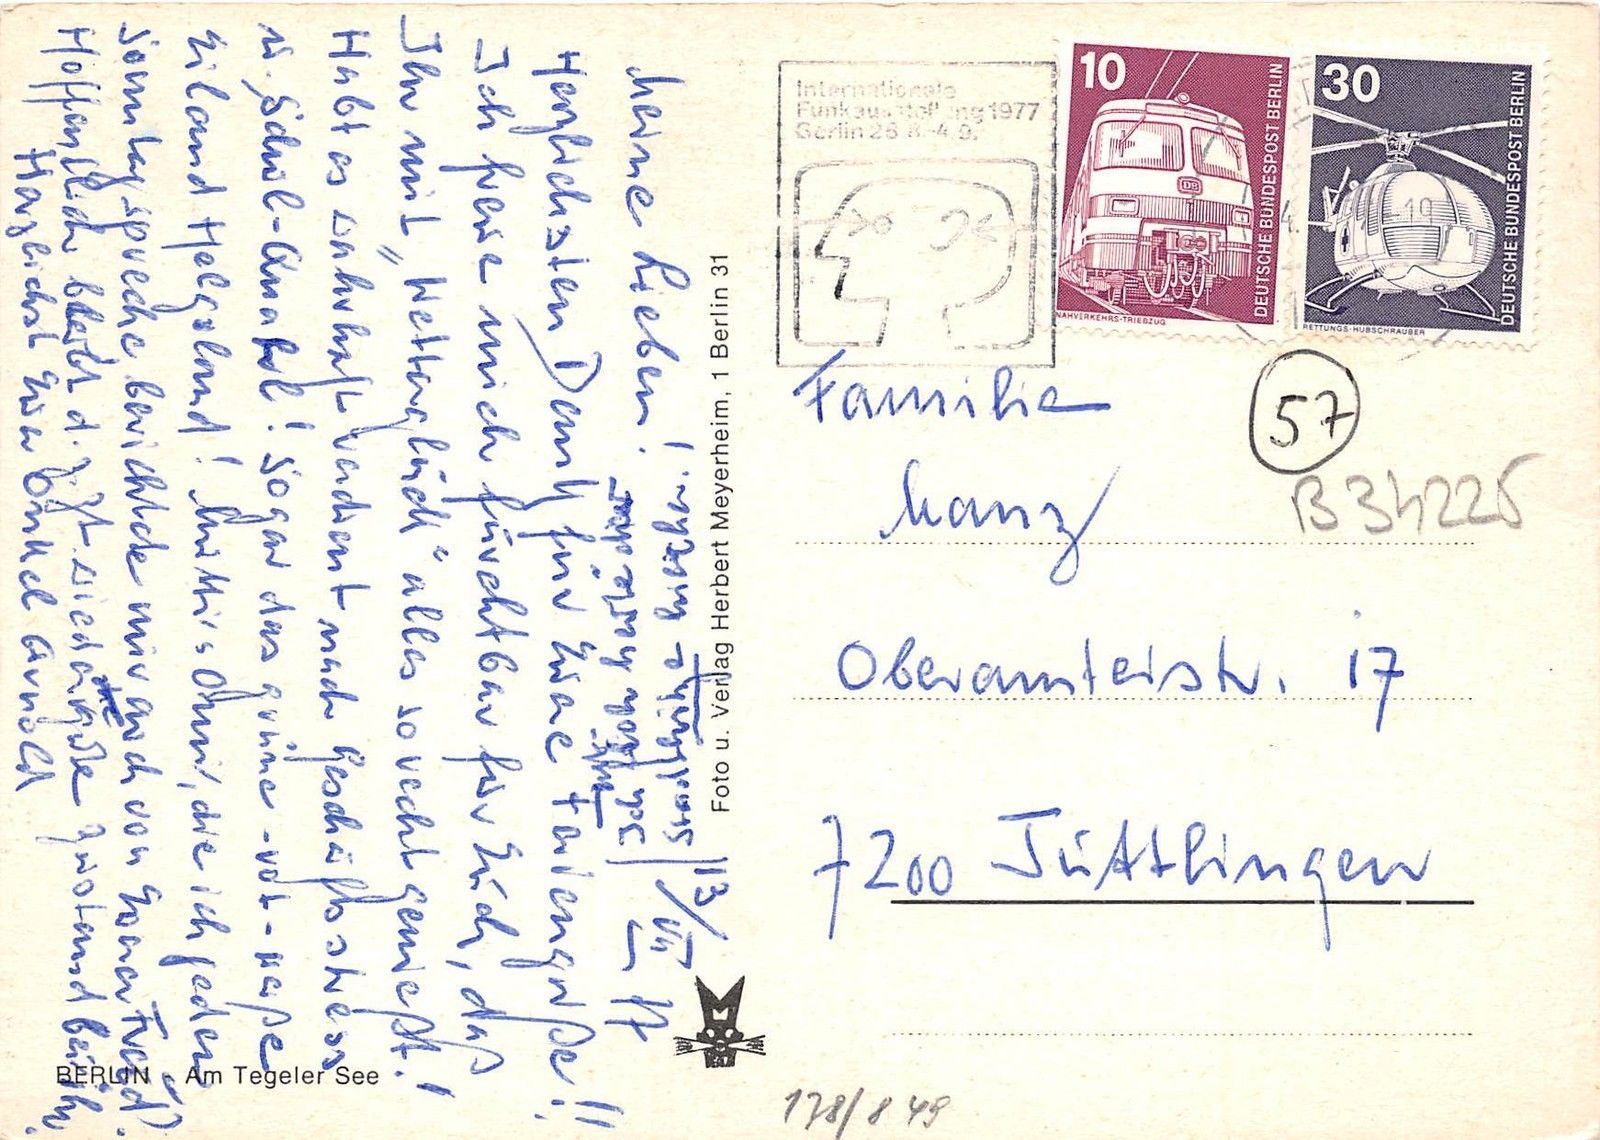 Meine Lieben!
Herzlichsten Dank für Eure Feriengrüße!!
Ich freue mich furchtbar für Euch, daß
Ihr mit „Wetterglück" alles so recht genießt!
Habt es wahrhaft verdient nach Geschäftsstress
u. Schul-Gnatel! Sogar das grüne-rot-weiße
Eiland Helgoland! Muttis Omi, die ich jeden
Sonntag spreche berichtete mir auch von Eurer Freud!
Hoffentlich bleibt d. jetzt wied. gute Zustand bei ihr.
Herzlichst Euer Onkel Arnold
13/VII 77
Foto u. Verlag Herbert Meyerheim, 1 Berlin 31
BERLIN - Am Tegeler See
Internationale
Funkausstellung 1977
Berlin 26.8.-4.9.
10
DEUTSCHE BUNDESPOST BERLIN
DB
NAHVERKEHRS-TRIEBZUG
30
DEUTSCHE BUNDESPOST BERLIN
RETTUNGS-HUBSCHRAUBER
Familie
Manz
Oberamteistr. 17
7200 Tuttlingen
57
B34225
178/849